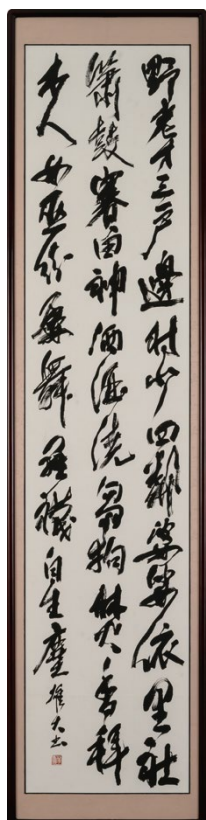 野老才三戶邊村少四鄰婆娑依里社
簫鼓賽田神洒酒澆芻狗焚香拜
木人女巫紛屢舞羅襪自生塵 雄大書